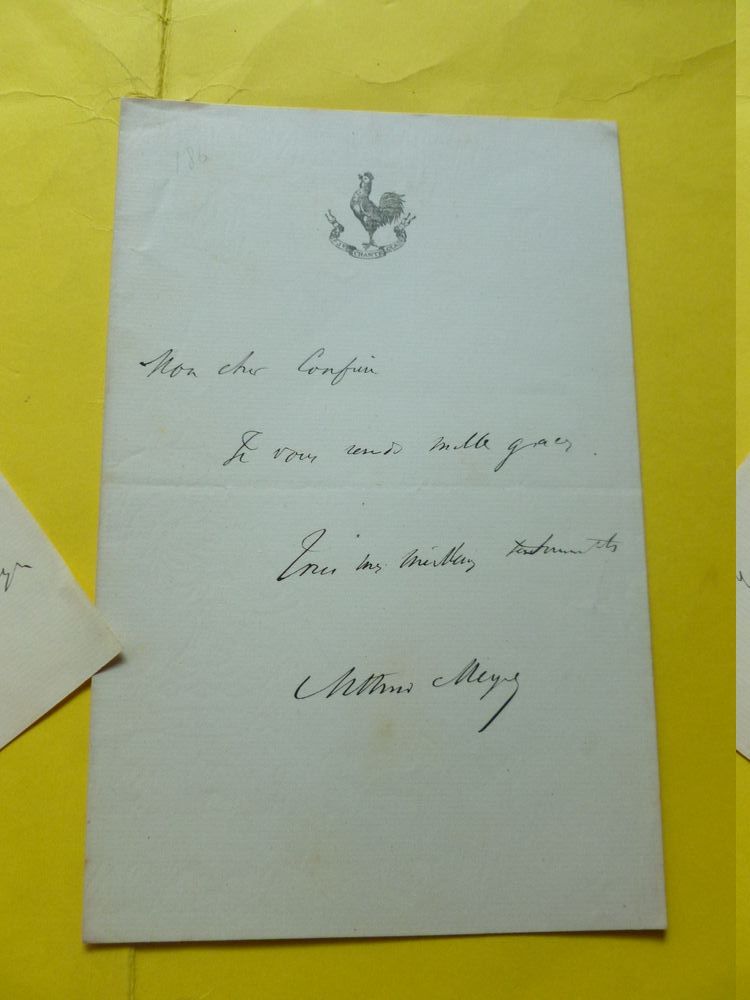 186
JE CHANTE CLAIR
Mon cher Confrère
Je vous rends mille graces.
Tous mes meilleurs sentiments
Arthur Meyer